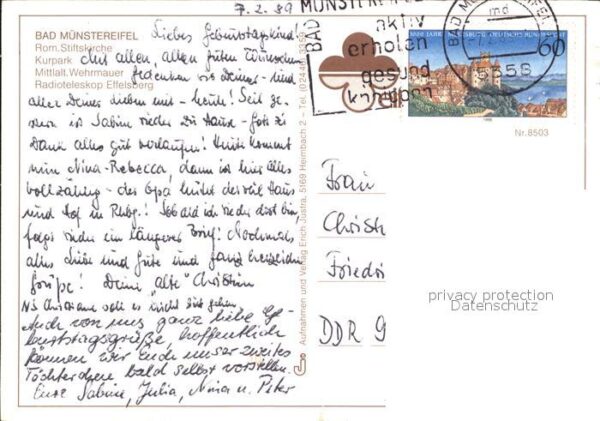 7.2.89
BAD MÜNSTEREIFEL
Rom.Stiftskirche
Kurpark
Mittlalt.Wehrmauer
Radioteleskop Effelsberg
Liebes Geburtstagskind!
Mit allen, allen guten Wünschen
gedenken wir Deiner - und
aller Deiner Lieben mit - heute! Seit
ist Sabine wieder zu Hause - Gott sei
Dank alles gut verlaufen! Heute kommt
nun Nina-Rebecca, dann ist hier alles
vollzählig - der Opa hütet derweil Haus
und Hof in Rhbg.! Sobald ich wieder dort bin
folgt wieder ein längerer Brief! Nochmals
alles Liebe und Gute und ganz herzliche
Grüße! Deine "alte" Christin
NS Christiane soll es nicht gehen
Auch von uns ganz liebe Ge-
burtstagsgrüße, hoffentlich
können wir Euch unser zweites
Töchterchen bald selbst vorstellen.
Eure Sabine, Julia, Nina u. Peter
Aufnahmen und Verlag Erich Justra, 5169 Heimbach 2 - Tel. (02446) 3359
BAD MÜNSTEREIFEL
aktiv
erholen
gesund
BAD MÜNSTEREIFEL
md
5358
1000 JAHRE MEERSBURG DEUTSCHE BUNDESPOST
60
1988
Nr.8503
Frau
Christ
Friedri
DDR 9
privacy protection
Datenschutz